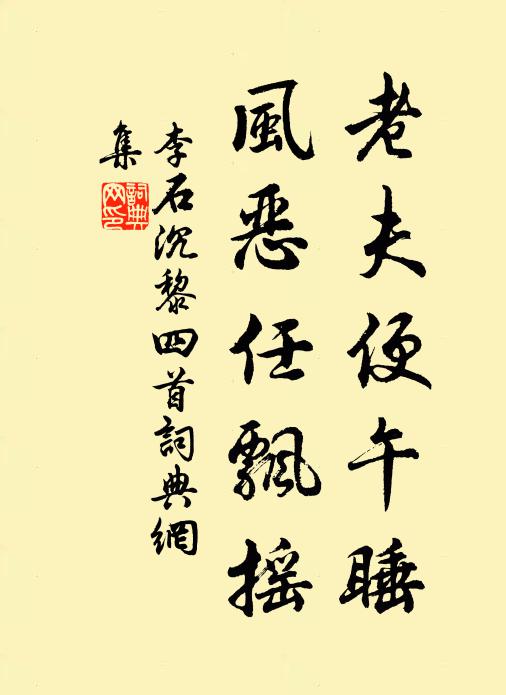 老夫便午睡
風惡任飄摇
李石沉黎四首詞典網
集
詞典
网印